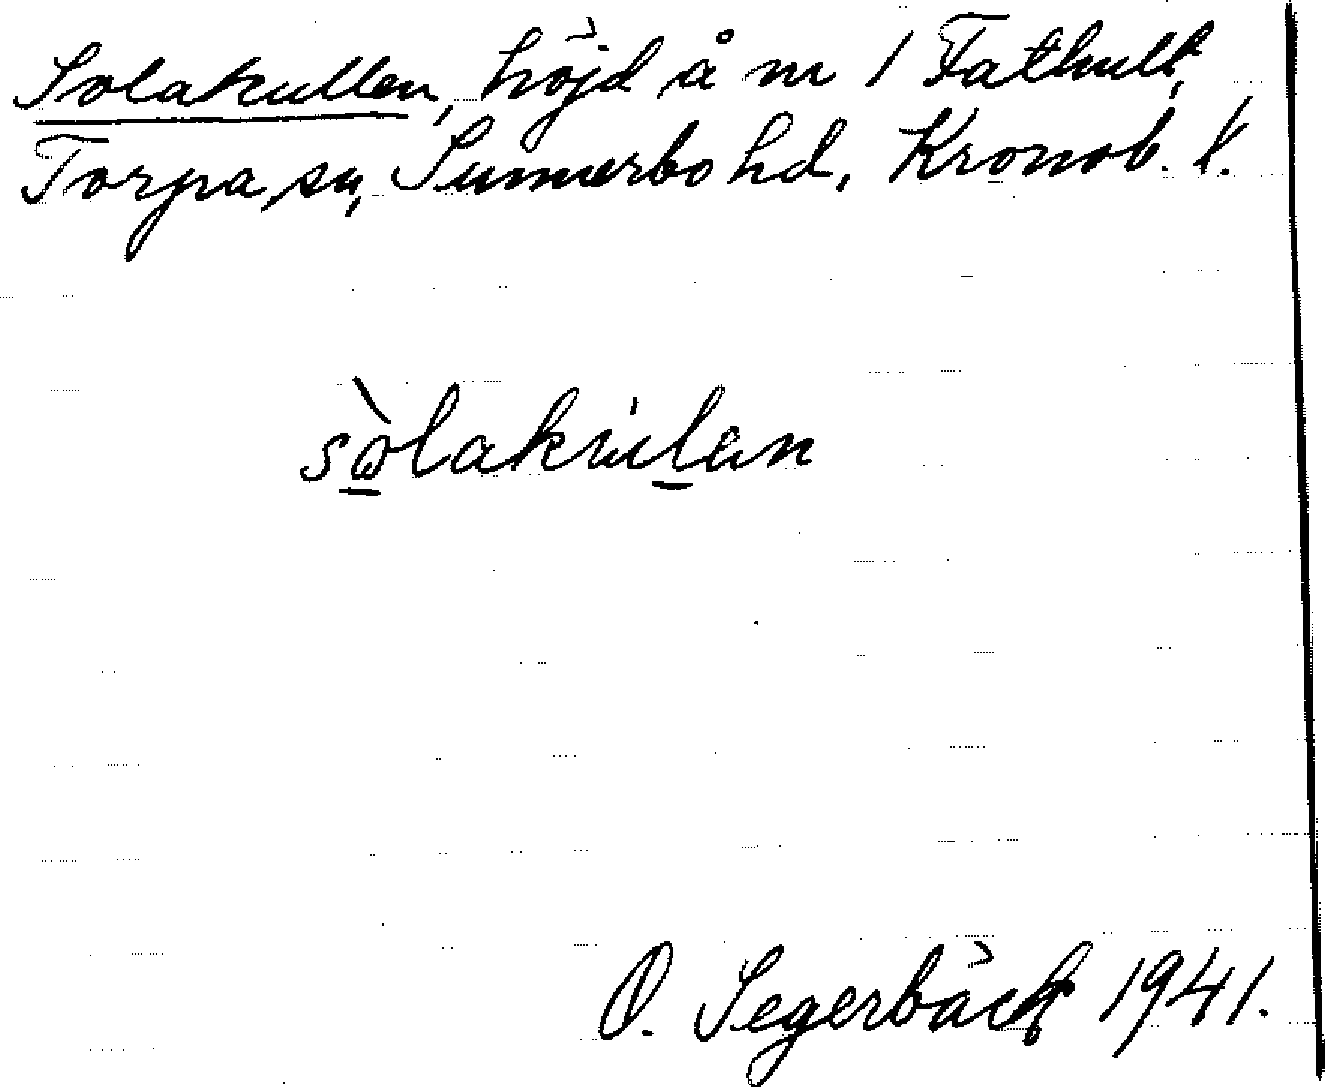 Solakullen, höjd å nr 1 Fathult,
Torpa sn, Sunnerbo hd, Kronob. l.
sòlakúlen
O. Segerbäck 1941.